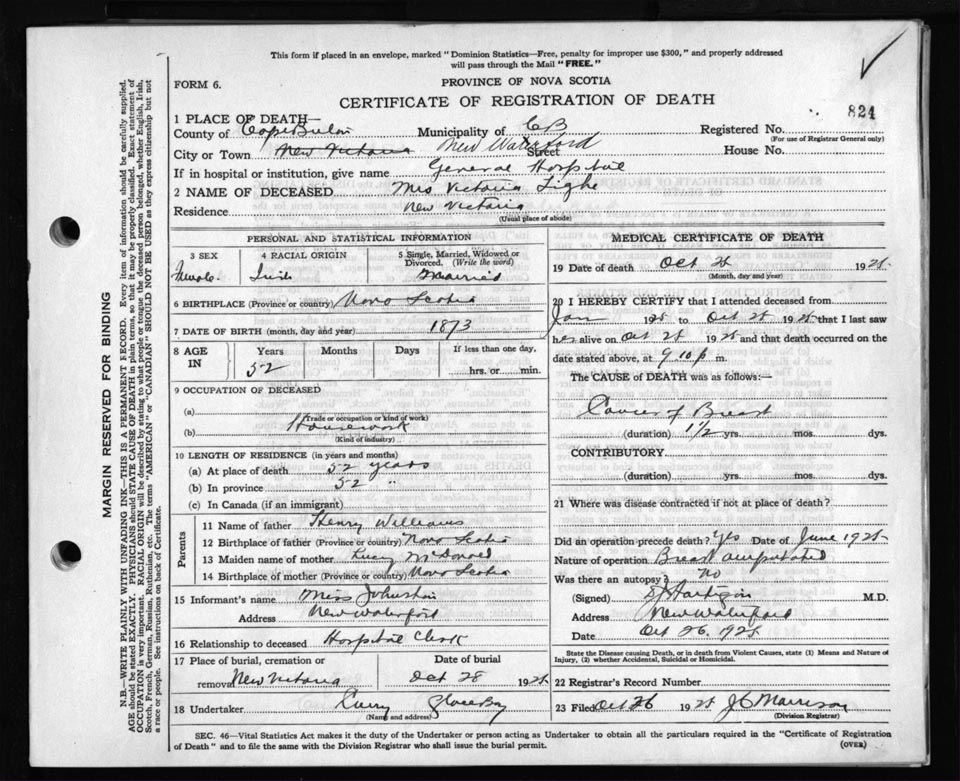 This form if placed in an envelope, marked "Dominion Statistics—Free, penalty for improper use $300," and properly addressed
will pass through the Mail "FREE."
FORM 6.
PROVINCE OF NOVA SCOTIA
CERTIFICATE OF REGISTRATION OF DEATH
824
1 PLACE OF DEATH—
County of Cape Breton Municipality of CB Registered No.
(For use of Registrar General only)
City or Town New Victoria New Waterford Street House No.
If in hospital or institution, give name General Hospital
2 NAME OF DECEASED Mrs Victoria Tighe
Residence New Victoria
(Usual place of abode)
PERSONAL AND STATISTICAL INFORMATION
3 SEX Female
4 RACIAL ORIGIN Irish
5 Single, Married, Widowed or Divorced. (Write the word) Married
6 BIRTHPLACE (Province or country) Nova Scotia
7 DATE OF BIRTH (month, day and year) 1873
8 AGE IN Years 52 Months Days If less than one day, hrs. or min.
9 OCCUPATION OF DECEASED
(a)
(Trade or occupation or kind of work)
(b) Housework
(Kind of industry)
10 LENGTH OF RESIDENCE (in years and months)
(a) At place of death 52 years
(b) In province 52 "
(c) In Canada (if an immigrant)
Parents
11 Name of father Henry Williams
12 Birthplace of father (Province or country) Nova Scotia
13 Maiden name of mother Lucy McDonald
14 Birthplace of mother (Province or country) Nova Scotia
15 Informant's name Miss Johnston
Address New Waterford
16 Relationship to deceased Hospital Clerk
17 Place of burial, cremation or removal New Victoria Date of burial Oct 28 1925
18 Undertaker Curry Glace Bay
(Name and address)
MEDICAL CERTIFICATE OF DEATH
19 Date of death Oct 25 1925
(Month, day and year)
20 I HEREBY CERTIFY that I attended deceased from
Jan 1925 to Oct 25 1925 that I last saw
her alive on Oct 25 1925 and that death occurred on the
date stated above, at 9 10 p m.
The CAUSE of DEATH was as follows:—
Cancer of Breast
(duration) 1½ yrs. mos. dys.
CONTRIBUTORY
(duration) yrs. mos. dys.
21 Where was disease contracted if not at place of death?
Did an operation precede death? Yes Date of June 1925
Nature of operation Breast amputated
Was there an autopsy? no
(Signed) Hartigan M.D.
Address New Waterford
Date Oct 26. 1925
State the Disease causing Death, or in death from Violent Causes, state (1) Means and Nature of
Injury, (2) whether Accidental, Suicidal or Homicidal.
22 Registrar's Record Number
23 Filed Oct 26 1925 Morrison
(Division Registrar)
SEC. 46—Vital Statistics Act makes it the duty of the Undertaker or person acting as Undertaker to obtain all the particulars required in the "Certificate of Registration
of Death" and to file the same with the Division Registrar who shall issue the burial permit.
(OVER)
MARGIN RESERVED FOR BINDING
N.B.—WRITE PLAINLY WITH UNFADING INK—THIS IS A PERMANENT RECORD. Every item of information should be carefully supplied.
AGE should be stated EXACTLY. PHYSICIANS should STATE CAUSE OF DEATH in plain terms, so that it may be properly classified. Exact statement of
OCCUPATION is very important. RACIAL ORIGIN will be described by stating to what people or tongue the deceased person belonged, whether English, Irish,
Scotch, French, German, Russian, Ruthenian, etc. The terms "AMERICAN" or "CANADIAN" SHOULD NOT BE USED as they express citizenship but not
a race or people. See instructions on back of Certificate.